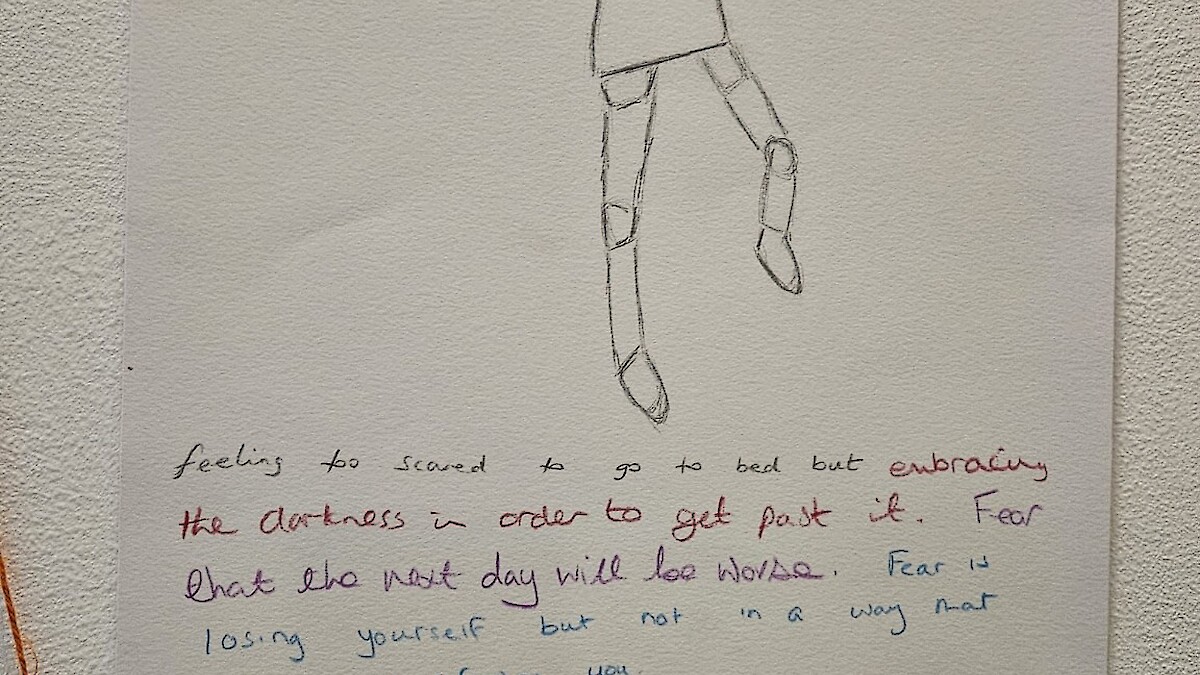 feeling too scared to go to bed but embracing
the darkness in order to get past it. Fear
that the next day will be worse. Fear is
losing yourself but not in a way that
you.